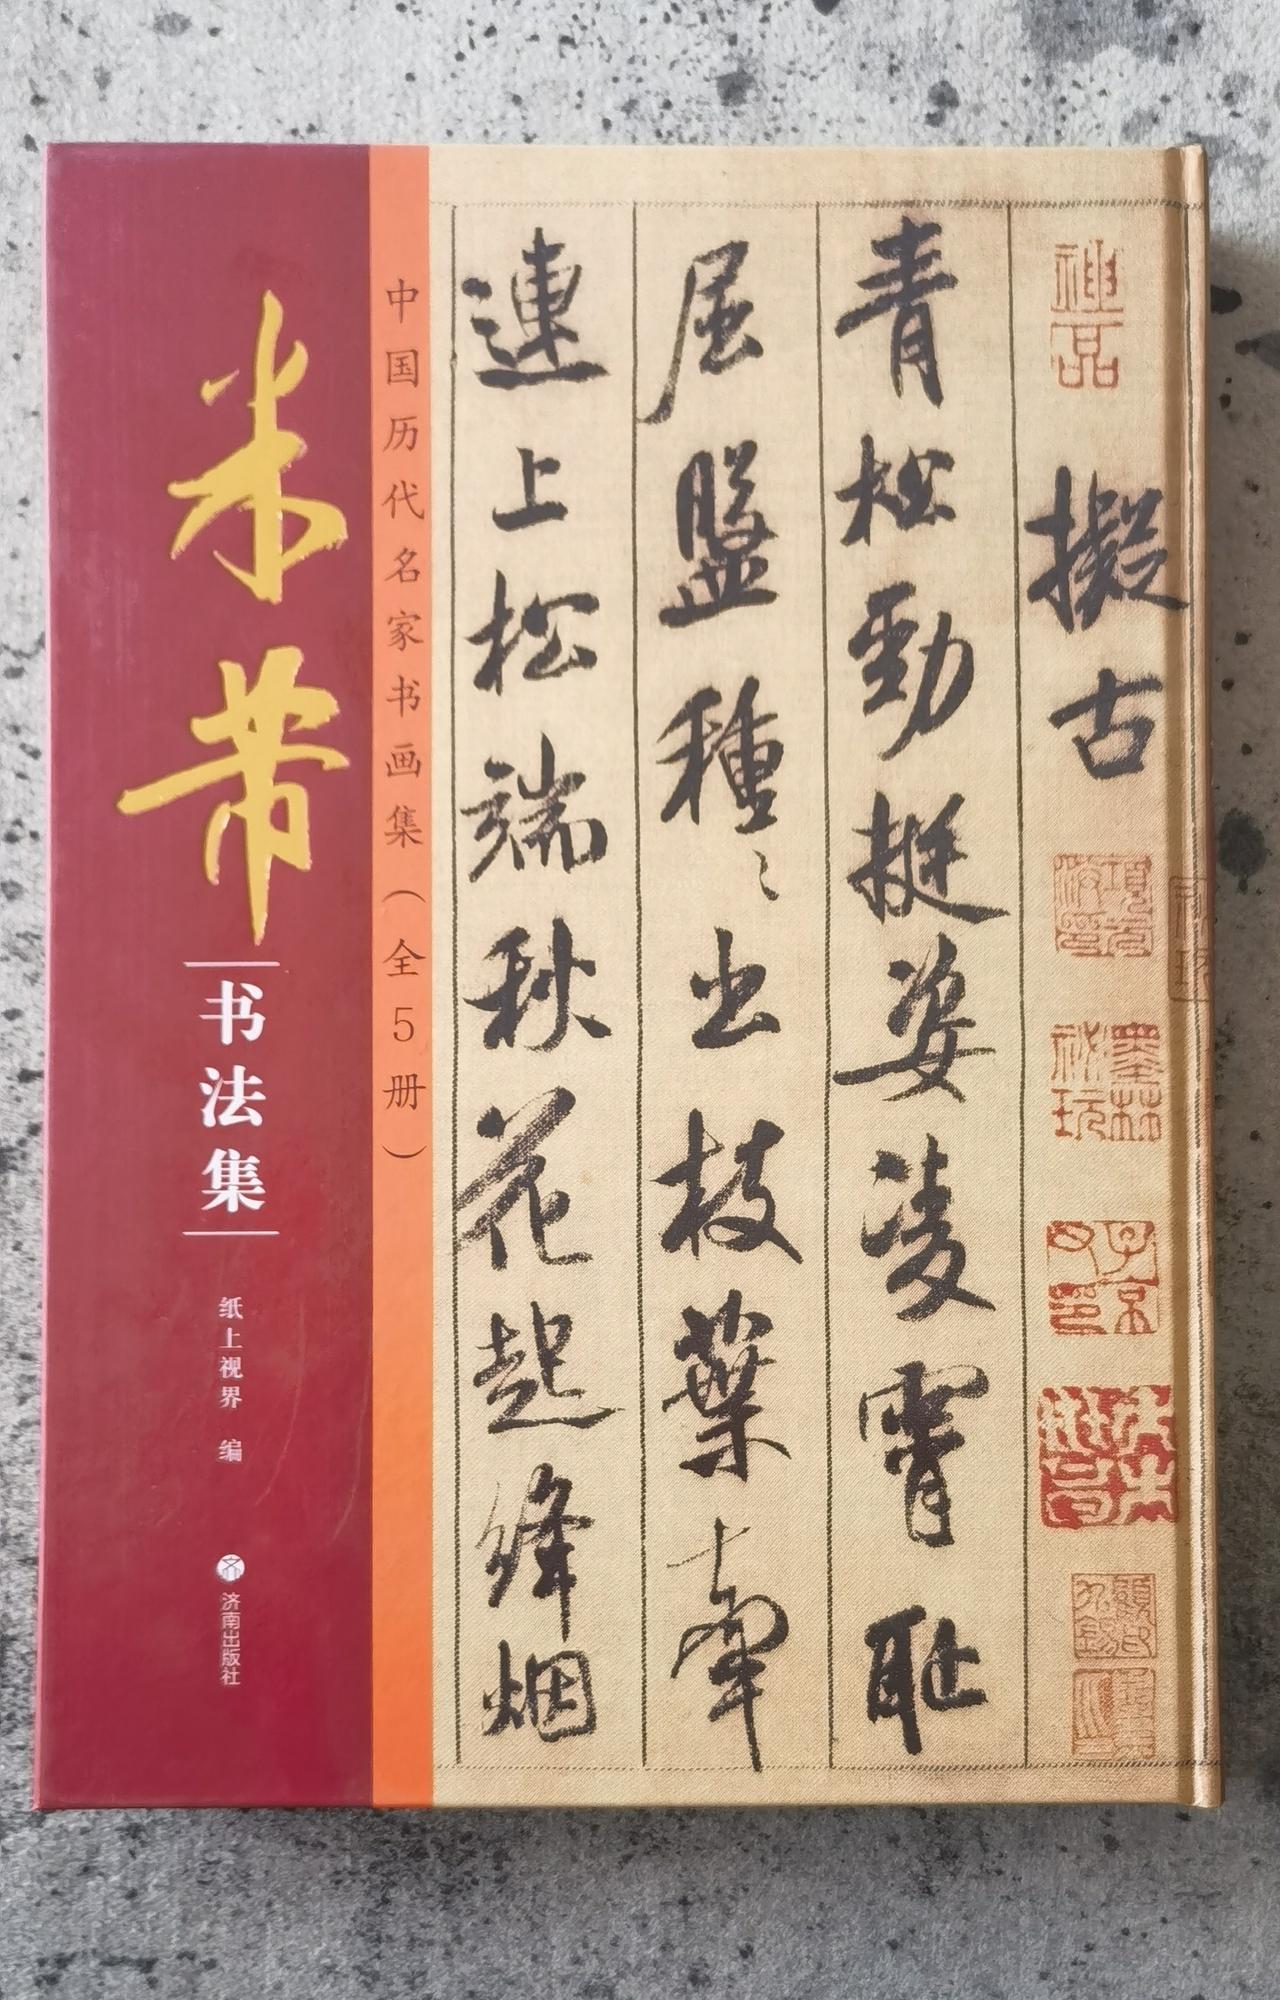 神品
擬古
青松勁挺姿凌霄恥
屈盤種〻出枝葉牽
連上松端秋花起絳烟
中国历代名家书画集（全5册）
米芾
书法集
纸上视界 编
济南出版社
墨林祕玩
子京